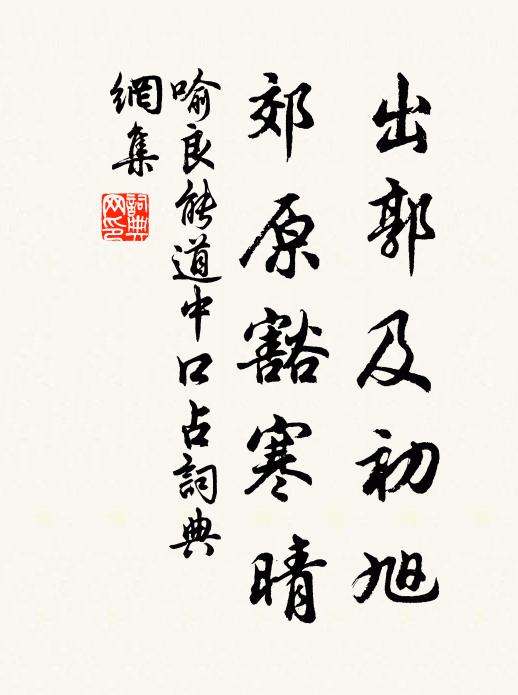 出郭及初旭
郊原豁寒晴
喻良能道中口占詞典
網集
詞典
网印